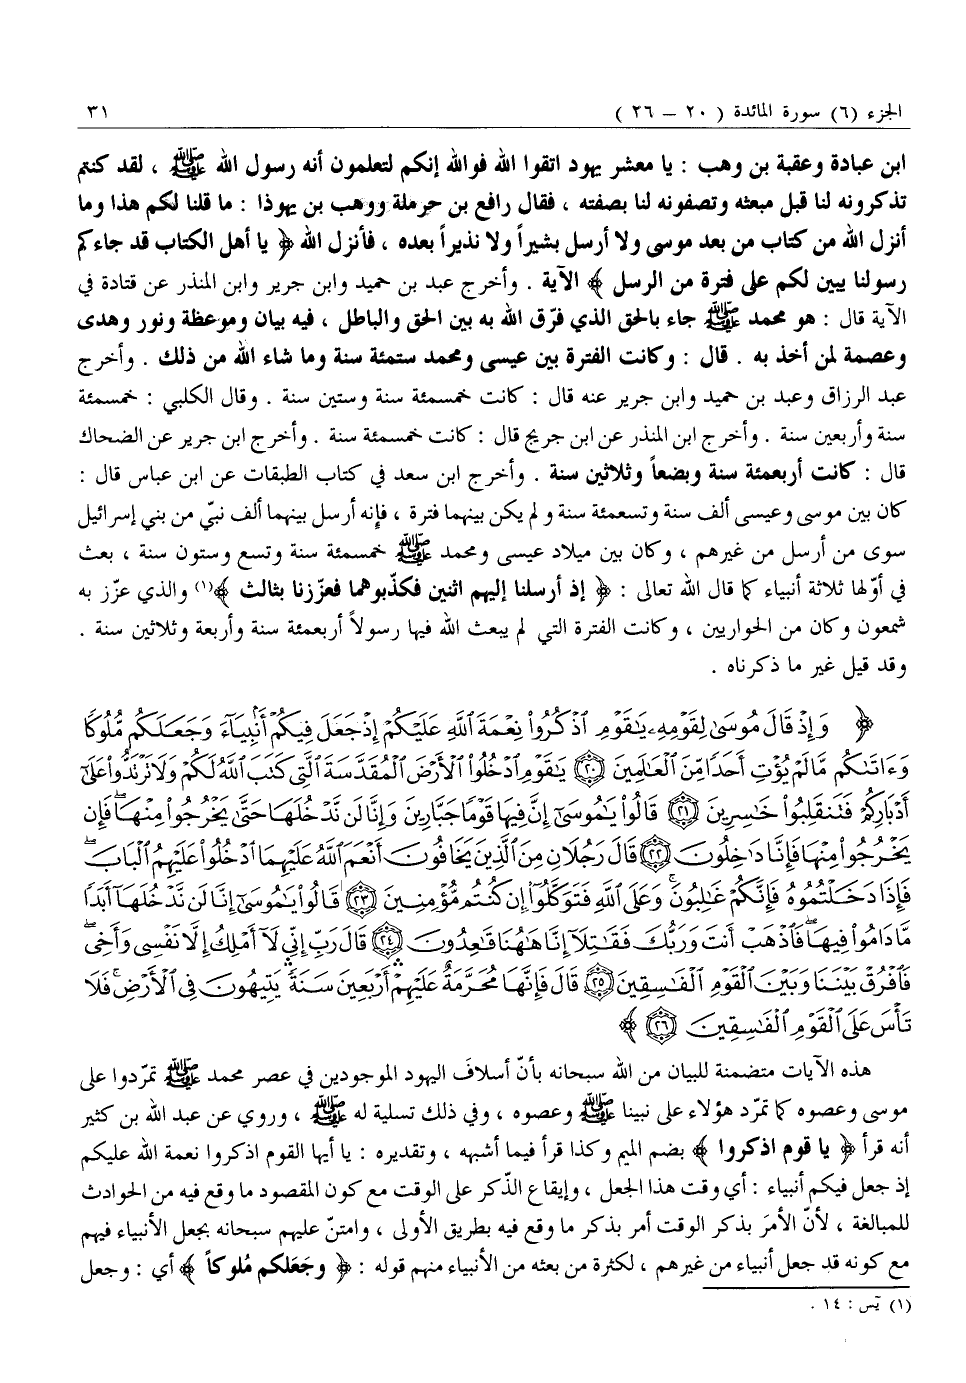 الجزء (٦) سورة المائدة ( ٢٠ – ٢٦ )
٣١
ابن عبادة وعقبة بن وهب : يا معشر يهود اتقوا الله فوالله إنكم لتعلمون أنه رسول الله ﷺ ، لقد كنتم
تذكرونه لنا قبل مبعثه وتصفونه لنا بصفته ، فقال رافع بن حرملة ووهب بن يهوذا : ما قلنا لكم هذا وما
أنزل الله من كتاب من بعد موسى ولا أرسل بشيراً ولا نذيراً بعده ، فأنزل الله ﴿ يا أهل الكتاب قد جاءكم
رسولنا يبين لكم على فترة من الرسل ﴾ الآية . وأخرج عبد بن حميد وابن جرير وابن المنذر عن قتادة في
الآية قال : هو محمد ﷺ جاء بالحق الذي فرّق الله به بين الحق والباطل ، فيه بيان وموعظة ونور وهدى
وعصمة لمن أخذ به . قال : وكانت الفترة بين عيسى ومحمد ستمئة سنة وما شاء الله من ذلك . وأخرج
عبد الرزاق وعبد بن حميد وابن جرير عنه قال : كانت خمسمئة سنة وستين سنة . وقال الكلبي : خمسمئة
سنة وأربعين سنة . وأخرج ابن المنذر عن ابن جريج قال : كانت خمسمئة سنة . وأخرج ابن جرير عن الضحاك
قال : كانت أربعمئة سنة وبضعاً وثلاثين سنة . وأخرج ابن سعد في كتاب الطبقات عن ابن عباس قال :
كان بين موسى وعيسى ألف سنة وتسعمئة سنة ولم يكن بينهما فترة ، فإنه أرسل بينهما ألف نبيّ من بني إسرائيل
سوى من أرسل من غيرهم ، وكان بين ميلاد عيسى ومحمد ﷺ خمسمئة سنة وتسع وستون سنة ، بعث
في أوّلها ثلاثة أنبياء كما قال الله تعالى : ﴿ إذ أرسلنا إليهم اثنين فكذّبوهما فعزّزنا بثالث ﴾(١) والذي عزّز به
شمعون وكان من الحواريين ، وكانت الفترة التي لم يبعث الله فيها رسولاً أربعمئة سنة وأربعة وثلاثين سنة .
وقد قيل غير ما ذكرناه .
﴿ وَإِذْ قَالَ مُوسَىٰ لِقَوْمِهِۦ يَٰقَوْمِ ٱذْكُرُوا۟ نِعْمَةَ ٱللَّهِ عَلَيْكُمْ إِذْ جَعَلَ فِيكُمْ أَنۢبِيَآءَ وَجَعَلَكُم مُّلُوكًا
وَءَاتَىٰكُم مَّا لَمْ يُؤْتِ أَحَدًا مِّنَ ٱلْعَٰلَمِينَ ۝٢٠ يَٰقَوْمِ ٱدْخُلُوا۟ ٱلْأَرْضَ ٱلْمُقَدَّسَةَ ٱلَّتِى كَتَبَ ٱللَّهُ لَكُمْ وَلَا تَرْتَدُّوا۟ عَلَىٰٓ
أَدْبَارِكُمْ فَتَنقَلِبُوا۟ خَٰسِرِينَ ۝٢١ قَالُوا۟ يَٰمُوسَىٰٓ إِنَّ فِيهَا قَوْمًا جَبَّارِينَ وَإِنَّا لَن نَّدْخُلَهَا حَتَّىٰ يَخْرُجُوا۟ مِنْهَا ۖ فَإِن
يَخْرُجُوا۟ مِنْهَا فَإِنَّا دَٰخِلُونَ ۝٢٢ قَالَ رَجُلَانِ مِنَ ٱلَّذِينَ يَخَافُونَ أَنْعَمَ ٱللَّهُ عَلَيْهِمَا ٱدْخُلُوا۟ عَلَيْهِمُ ٱلْبَابَ ۖ
فَإِذَا دَخَلْتُمُوهُ فَإِنَّكُمْ غَٰلِبُونَ ۚ وَعَلَى ٱللَّهِ فَتَوَكَّلُوٓا۟ إِن كُنتُم مُّؤْمِنِينَ ۝٢٣ قَالُوا۟ يَٰمُوسَىٰٓ إِنَّا لَن نَّدْخُلَهَآ أَبَدًا
مَّا دَامُوا۟ فِيهَا ۖ فَٱذْهَبْ أَنتَ وَرَبُّكَ فَقَٰتِلَآ إِنَّا هَٰهُنَا قَٰعِدُونَ ۝٢٤ قَالَ رَبِّ إِنِّى لَآ أَمْلِكُ إِلَّا نَفْسِى وَأَخِى ۖ
فَٱفْرُقْ بَيْنَنَا وَبَيْنَ ٱلْقَوْمِ ٱلْفَٰسِقِينَ ۝٢٥ قَالَ فَإِنَّهَا مُحَرَّمَةٌ عَلَيْهِمْ ۛ أَرْبَعِينَ سَنَةً ۛ يَتِيهُونَ فِى ٱلْأَرْضِ ۚ فَلَا
تَأْسَ عَلَى ٱلْقَوْمِ ٱلْفَٰسِقِينَ ۝٢٦ ﴾
هذه الآيات متضمنة للبيان من الله سبحانه بأنّ أسلاف اليهود الموجودين في عصر محمد ﷺ تمرّدوا على
موسى وعصوه كما تمرّد هؤلاء على نبينا ﷺ وعصوه ، وفي ذلك تسلية له ﷺ ، وروي عن عبد الله بن كثير
أنه قرأ ﴿ يا قوم اذكروا ﴾ بضم الميم وكذا قرأ فيما أشبهه ، وتقديره : يا أيها القوم اذكروا نعمة الله عليكم
إذ جعل فيكم أنبياء : أي وقت هذا الجعل ، وإيقاع الذّكر على الوقت مع كون المقصود ما وقع فيه من الحوادث
للمبالغة ، لأنّ الأمرَ بذكر الوقت أمر بذكر ما وقع فيه بطريق الأولى ، وامتنّ عليهم سبحانه بجعل الأنبياء فيهم
مع كونه قد جعل أنبياء من غيرهم ، لكثرة من بعثه من الأنبياء منهم قوله : ﴿ وجَعَلكم مُلوكاً ﴾ أي : وجعل
(١) يَس : ١٤ .